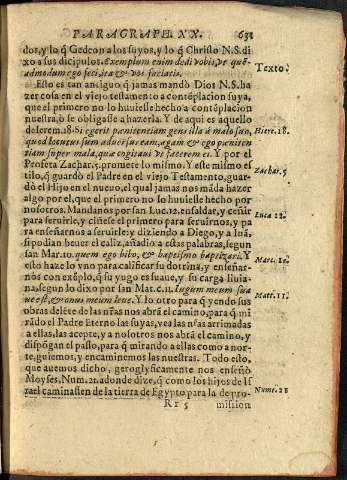 PARAGRAPH. XX. 631
dos, y lo q̃ Gedeon a los suyos, y lo q̃ Christo N.S. di
xo a sus dicipulos. Exemplum enim dedi vobis, vt que
admodum ego feci, ita & vos faciatis.
Texto.
Esto es tan antiguo q̃ jamas mandò Dios N.S. ha
zer cosa en el viejo testamento a contẽplacion suya,
que el primero no lo huuiesse hecho a contẽplacion
nuestra, ò se obligasse a hazerla. Y de aqui es aquello
de Ierem. 18. Si egerit pænitentiam gens illa á malo suo,
Hiere. 18.
quod locutus sum aduersus eam, agam & ego pæniten
tiam super malo, quæ cogitaui vt facerem ei. Y por el
Profeta Zachar. 5. promete lo mismo. Y este mismo es
Zachar. 5
tilo, q̃ guardò el Padre en el viejo Testamento, guar-
dò el Hijo en el nueuo, el qual jamas nos mãda hazer
algo por el, que el primero no lo huuiesse hecho por
nosotros. Mandanos por san Luc. 12. ensaldar, y ceñir
Luca 12.
para seruirle, y ciñese el primero para seruirnos, y pa
ra enseñarnos a seruirle: y diziendo a Diego, y a Iuã,
si podian beuer el caliz, añadio a estas palabras, segun
san Mar. 10. quem ego bibo, & baptismo baptizari. Y
Marc. 10.
esto haze lo vno para calificar su dotrina, y enseñar-
nos con exẽplo, q̃ su yugo es suaue, y su carga liuia-
na, segun lo dixo por san Mat. c. 11. Iugum meum sua
Mat. 11.
ue est, & onus meum leue. Y lo otro para q̃ yendo sus
obras delãte de las nr̃as nos abrã el camino, para q̃ mi
rãdo el Padre Eterno las suyas, vea las nr̃as arrimadas
a ellas, las acepte, y a nosotros nos abrã el camino, y
dispõgan el passo, para q̃ mirando a ellas como a nor-
te, guiemos, y encaminemos las nuestras. Todo esto,
que auemos dicho, geroglyficamente nos enseñò
Moyses, Num. 21. adonde dize, q̃ como los hijos de Is
Nume. 21
rael caminassen de la tierra de Egypto para la de pro-
Rr 5 mission